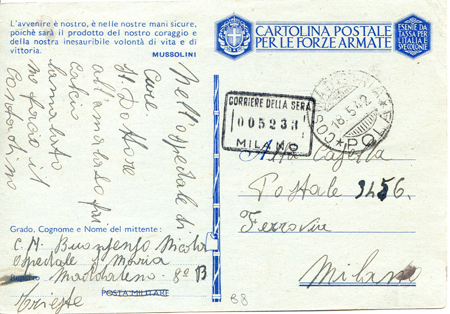 L'avvenire è nostro, è nelle nostre mani sicure,
poichè sarà il prodotto del nostro coraggio e
della nostra inesauribile volontà di vita e di
vittoria.
MUSSOLINI
CARTOLINA POSTALE
PER LE FORZE ARMATE
ESENTE DA
TASSA PER
L'ITALIA E
SVE COLONIE
Nell'ospedale di
Cure
il Dottore
all'ammalato fai
calcio
lammalato
CORRIERE DELLA SERA
005233
MILANO
18.5.42
POLA
Alla
Postale 3456
Ferrovia
Milano
Grado, Cognome e Nome del mittente:
C. M. Nicola
Ospedale S Maria
Maddalena 8º B
POSTA MILITARE
Trieste
B8